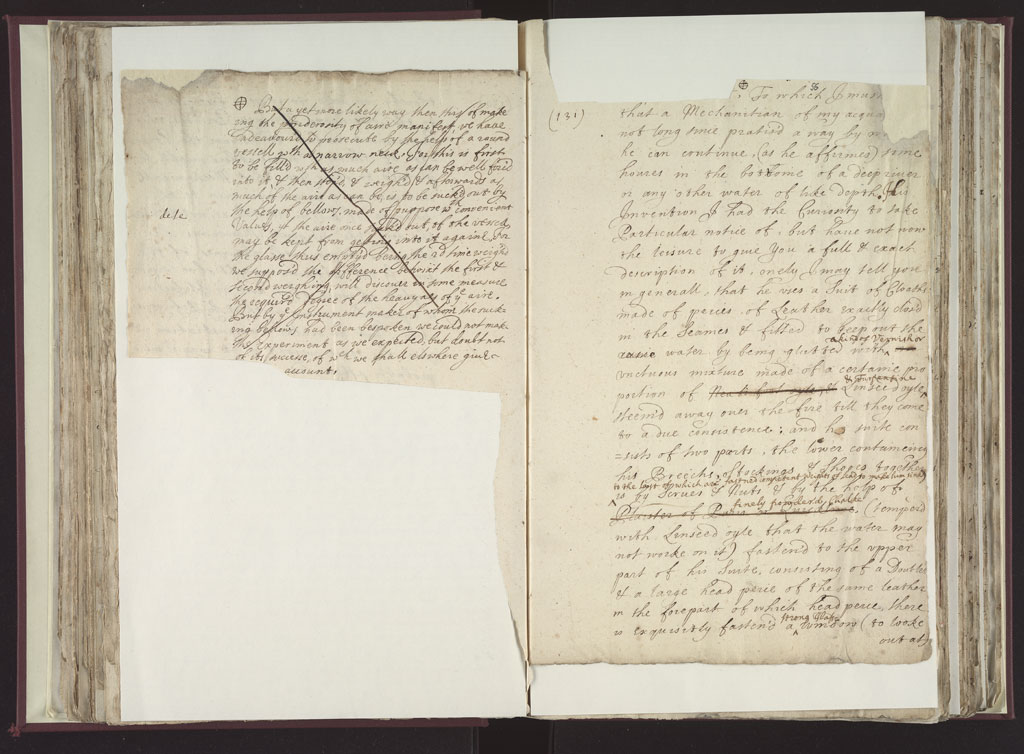 But a yet more likely way then this of make
ing the ponderosity of aire manifest, we have
endeavour'd to prosecute by the help of a round
vessell wth a narrow neck. For this is first
to be fill'd wth as much aire as can be well forc'd
into it, & then stopt & weigh'd, & afterwards as
much of the aire as can be, is to be suck'd out by
the help of bellows, made of purpose wth convenient
Valves, yt the aire once suck'd out, of the vessel
may be kept from getting into it againe. For
the glasse thus empty'd being the 2d time weigh'd
we suppos'd the difference betwixt the first &
second weighing, will discover in some measure
the requir'd
of the heavynes of ye aire.
But by ye Instrument maker of whom the suck-
ing bellows, had been bespoken we could not make
this Experiment as we expected, but doubt not
of its successe, of wch we shall elsewhere give
account.
dele
(131)
To which I must
that a Mechanitian of my acqua
not long since practis'd a way by w
he can continue, (as he affirmes) some
houres in the bottome of a deep river
or any other water of like depth. This
Invention I had the Curiosity to take
Particular notice of, but have not now
the leisure to give You a full & exact
description of it, onely I may tell you
in generall, that he uses a Suit of Cloaths
made of peices of Leather exactly clos'd
in the Seames & fitted to keep out the
water by being glutted with
unctuous mixture made of a certaine pro
portion of Linseed oyle
& Turpentine
steem'd away over the fire till they come
to a due consistence; and his suite con
=sists of two parts, the lower containeing
his Breechs, stockings & Shooes together
to the last of which are fastned competent weights of lead to make him sinke
is by Scrues & Nuts & by the help of
finely powder'd Chalke
Plaister of Paris (temper'd
with Linseed oyle that the water may
not worke on it) fasten'd to the upper
part of his suite, consisting of a Doublet
& a large head peice of the same leather
in the forepart of which head peice, there
is exquisitly fasten'd a window (to looke
strong glasse
out at)